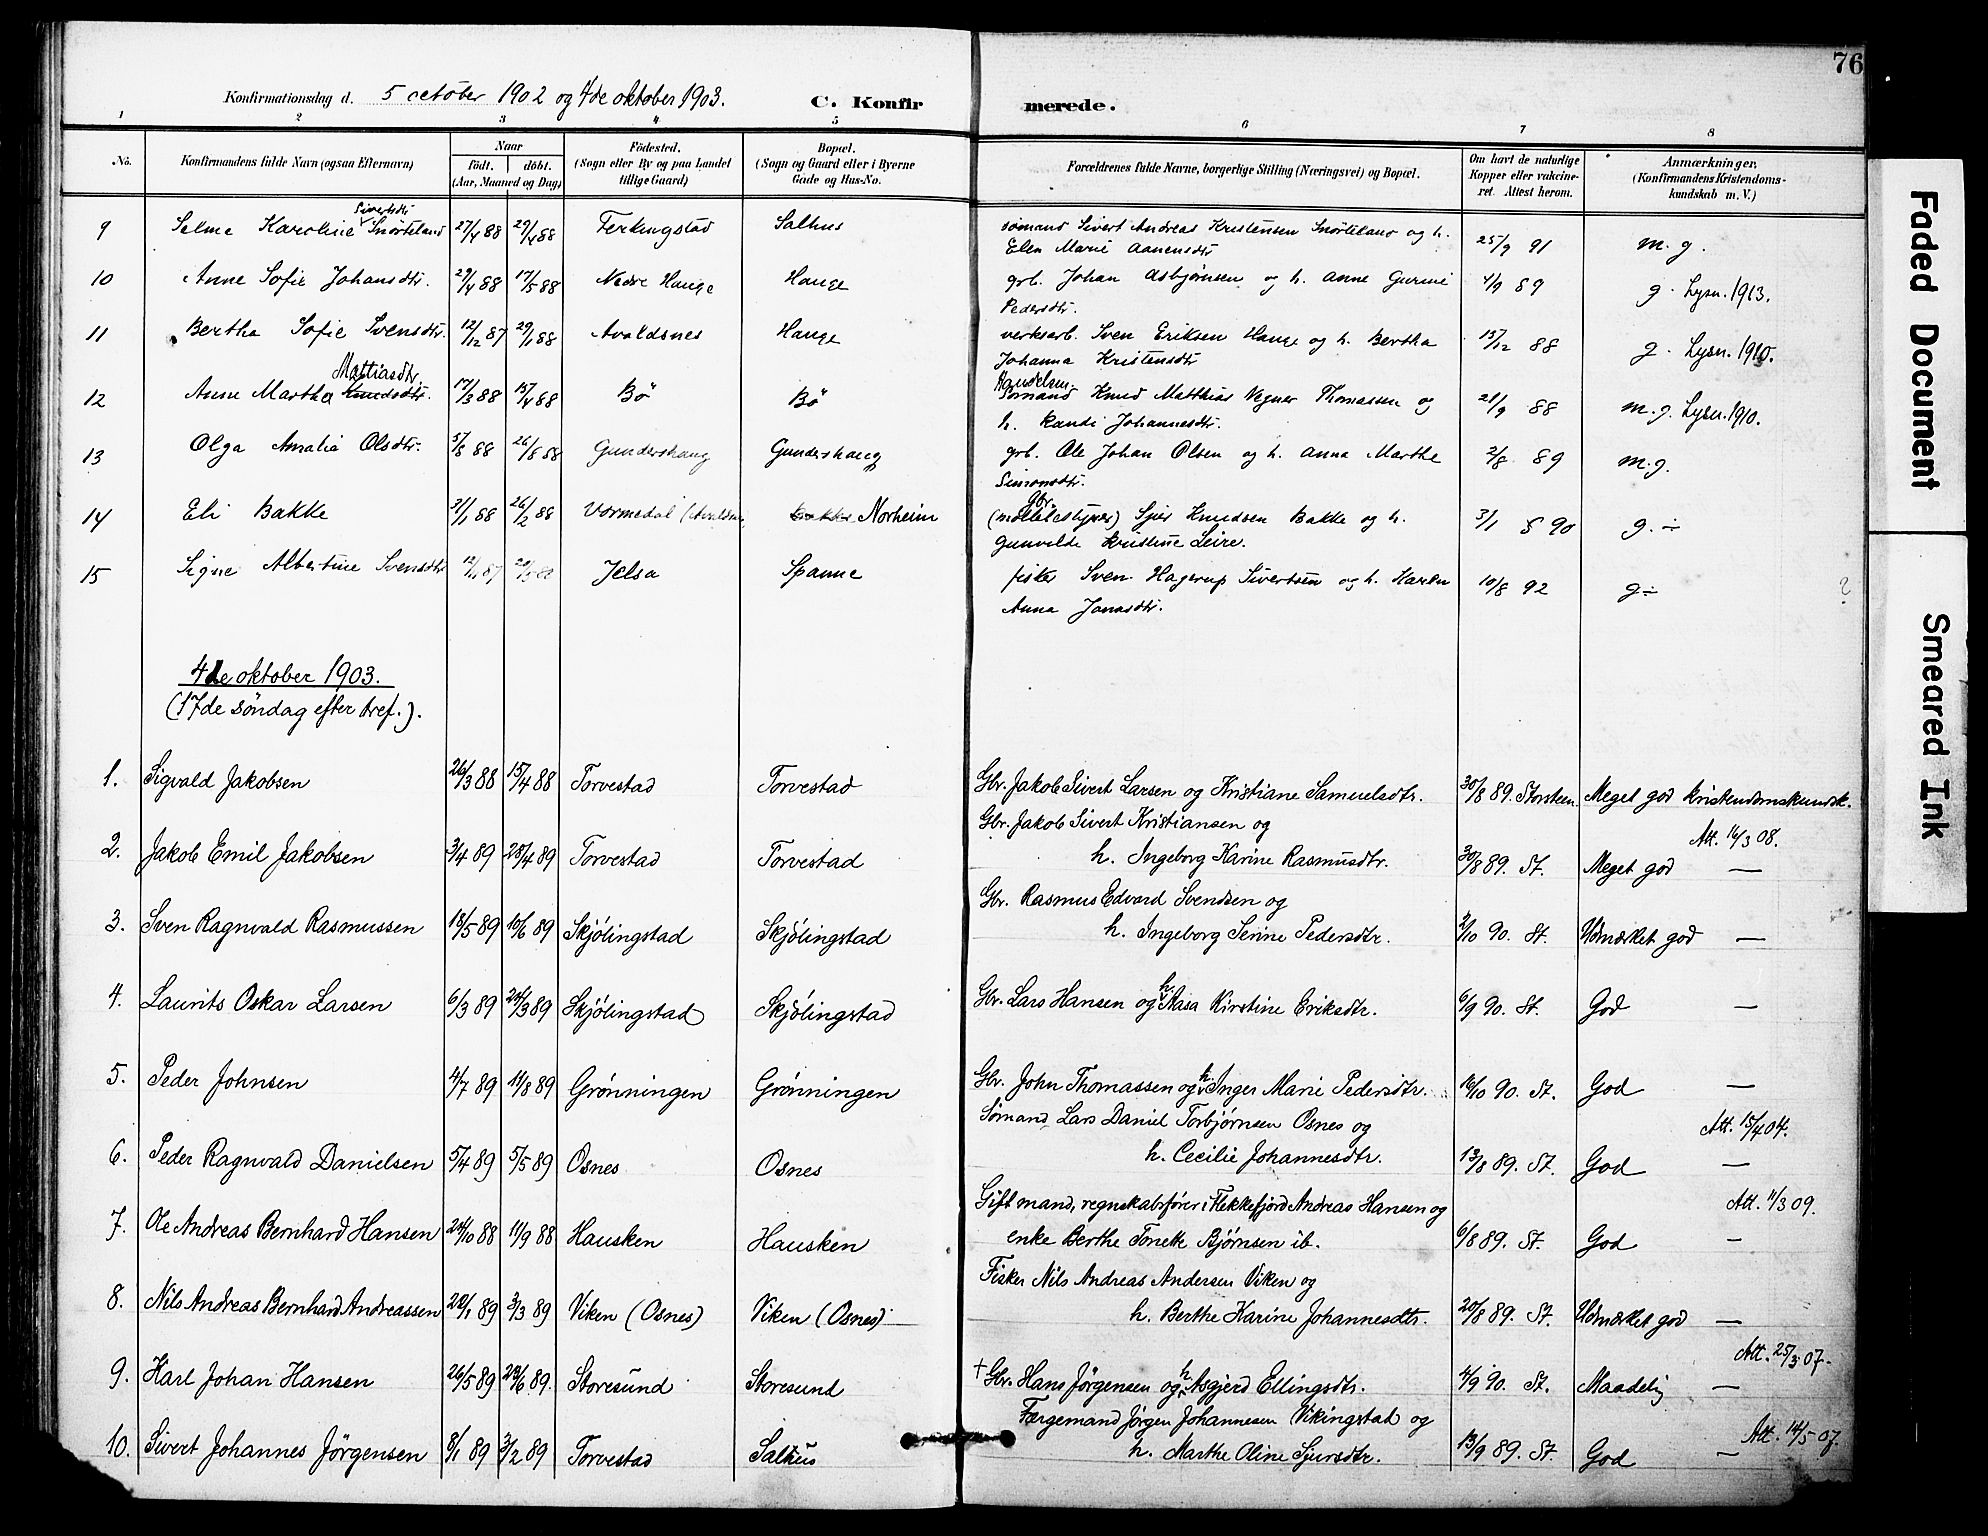 76
Konfirmationsdag d. 5 october 1902 og 4de oktober 1903. C. Konfirmerede.
1 2 3 4 5 6 7 8
No. Konfirmandens fulde Navn (ogsaa Efternavn) Naar født. døbt. (Aar, Maaned og Dag) Fødested. (Sogn eller By og paa Landet tillige Gaard) Bopæl. (Sogn og Gaard eller i Byerne Gade og Hus-No. Forældrenes fulde Navne, borgerlige Stilling (Næringsvei) og Bopæl. Om havt de naturlige Kopper eller vakcineret. Attest herom. Anmærkninger. (Konfirmandens Kristendomskundskab m. V.)
Sivertsdtr
9 Selma Karoline Snørteland 27/4 88 29/4 88 Ferkingstad Salhus sømand Sivert Andreas Kristensen Snørteland og h. 25/9 91 m. g.
Elen Marie Aanensdtr
10 Anne Sofie Johansdtr. 29/4 88 17/5 88 Nedre Hauge Hauge grb. Johan Asbjørnsen og h. Anne Gurine 4/9 89 g. Lysn. 1913.
Pedersdtr.
11 Bertha Sofie Svensdtr. 12/12 87 29/1 88 Avaldsnes Hauge verksarb. Sven Eriksen Hauge og h. Bertha 15/12 88 g. Lysn. 1910.
Johanna Kristensdtr
Mattiasdtr Handelsm.
12 Anne Martha Knudsdtr. 17/3 88 15/4 88 Bö Bö Sømand Knud Matthias Vegner Thomassen og 21/9 88 m. g. Lysn. 1910.
h. Randi Johannesdtr.
13 Olga Amalia Olsdtr. 5/8 88 26/8 88 Gundershaug Gundershaug grb. Ole Johan Olsen og h. Anna Marthe 2/8 89 m. g.
Simonsdtr.
Gbr.
14 Eli Bakke 31/1 88 26/2 88 Vormedal (Avaldsn. Bakke Norheim Knudsen Bakke og h. 3/1 90 g. ÷
Gunvolda Kristine Leire.
15 Signe Albertine Svensdtr 87 Jelsa Spanne fisker Sven Hagerup Sivertsen og h. Karen 10/8 92 g ÷ ?
Anna Jonasdtr.
4de oktober 1903.
(17de søndag efter tref.).
1. Sigvald Jakobsen 26/3 88 15/4 88 Torvestad Torvestad Gbr. Jakob Sivert Larsen og Kristiane Samuelsdtr. 30/8 89. Storsteen. Meget god kristendomskundsk.
Gbr. Jakob Sivert Kristiansen og Att. 16/3 08.
2. Jakob Emil Jakobsen 3/4 89 28/4 89 Torvestad Torvestad h. Ingeborg Karine Rasmusdtr. 30/8 89. St. Meget god —
Gbr. Rasmus Edvard Svendsen og
3. Sven Ragnvald Rasmussen 18/5 89 10/6 89 Skjölingstad Skjölingstad h. Ingeborg Serine Pedersdtr. 2/10 90. St. Udmærket god —
4. Laurits Oskar Larsen 6/3 89 24/3 89 Skjölingstad Skjölingstad Gbr. Lars Hansen og h. Aasa Kirstine Eriksdtr. 6/9 90. St. God —
5. Peder Johnsen 4/7 89 11/8 89 Grönningen Grönningen Gbr. John Thomassen og h. Inger Marie Pedersdtr. 16/10 90. St. God —
Sömand Lars Daniel Torbjørnsen Osnes og Att. 15/4 04.
6. Peder Ragnvald Danielsen 5/4 89 5/5 89 Osnes Osnes h. Cecilie Johannesdtr. 13/8 89. St. God —
Gift mand, regnskabsfører i Flekkefjord Andreas Hansen og Att. 11/3 09.
7. Ole Andreas Bernhard Hansen 24/10 88 11/9 88 Hausken Hausken enke Berthe Tonette Bjørnsen ib. 6/8 89. St. God —
Fisker Nils Andreas Andersen Viken og
8. Nils Andreas Bernhard Andreassen 22/1 89 3/3 89 Viken (Osnes) Viken (Osnes) h. Berthe Karine Johannesdtr. 20/8 89. St. Udmærket god —
Att. 25/3 07.
9. Karl Johan Hansen 26/5 89 23/6 89. Storesund Storesund † Gbr. Hans Jörgensen og h. Asgjerd Ellingsdtr. 4/9 90. St. Maadelig —
Færgemand Jörgen Johannesen Vikingstad og Att. 14/5 07.
10. Sivert Johannes Jörgensen 8/1 89 3/2 89 Torvestad Salhus h. Marthe Oline Sjursdtr. 13/9 89. St. God —
Faded Document
Smeared Ink